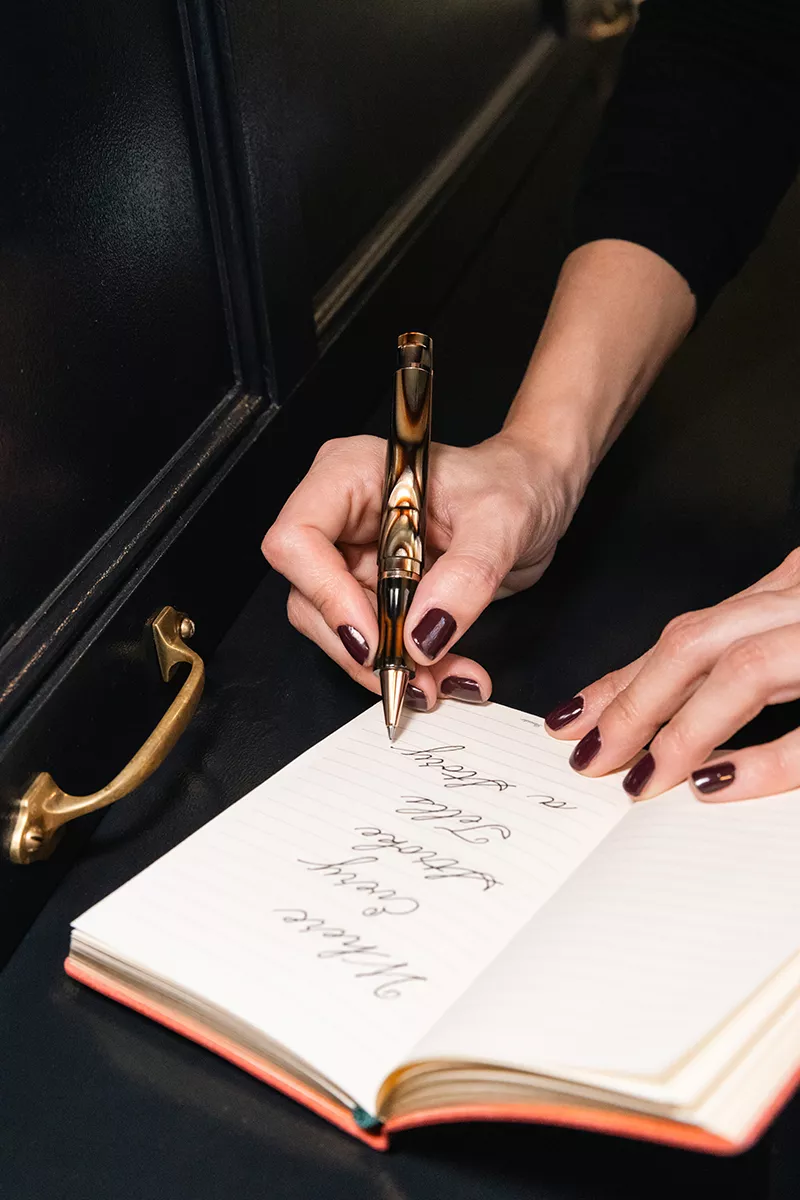 Where
Every
Stroke
Tells
a Story